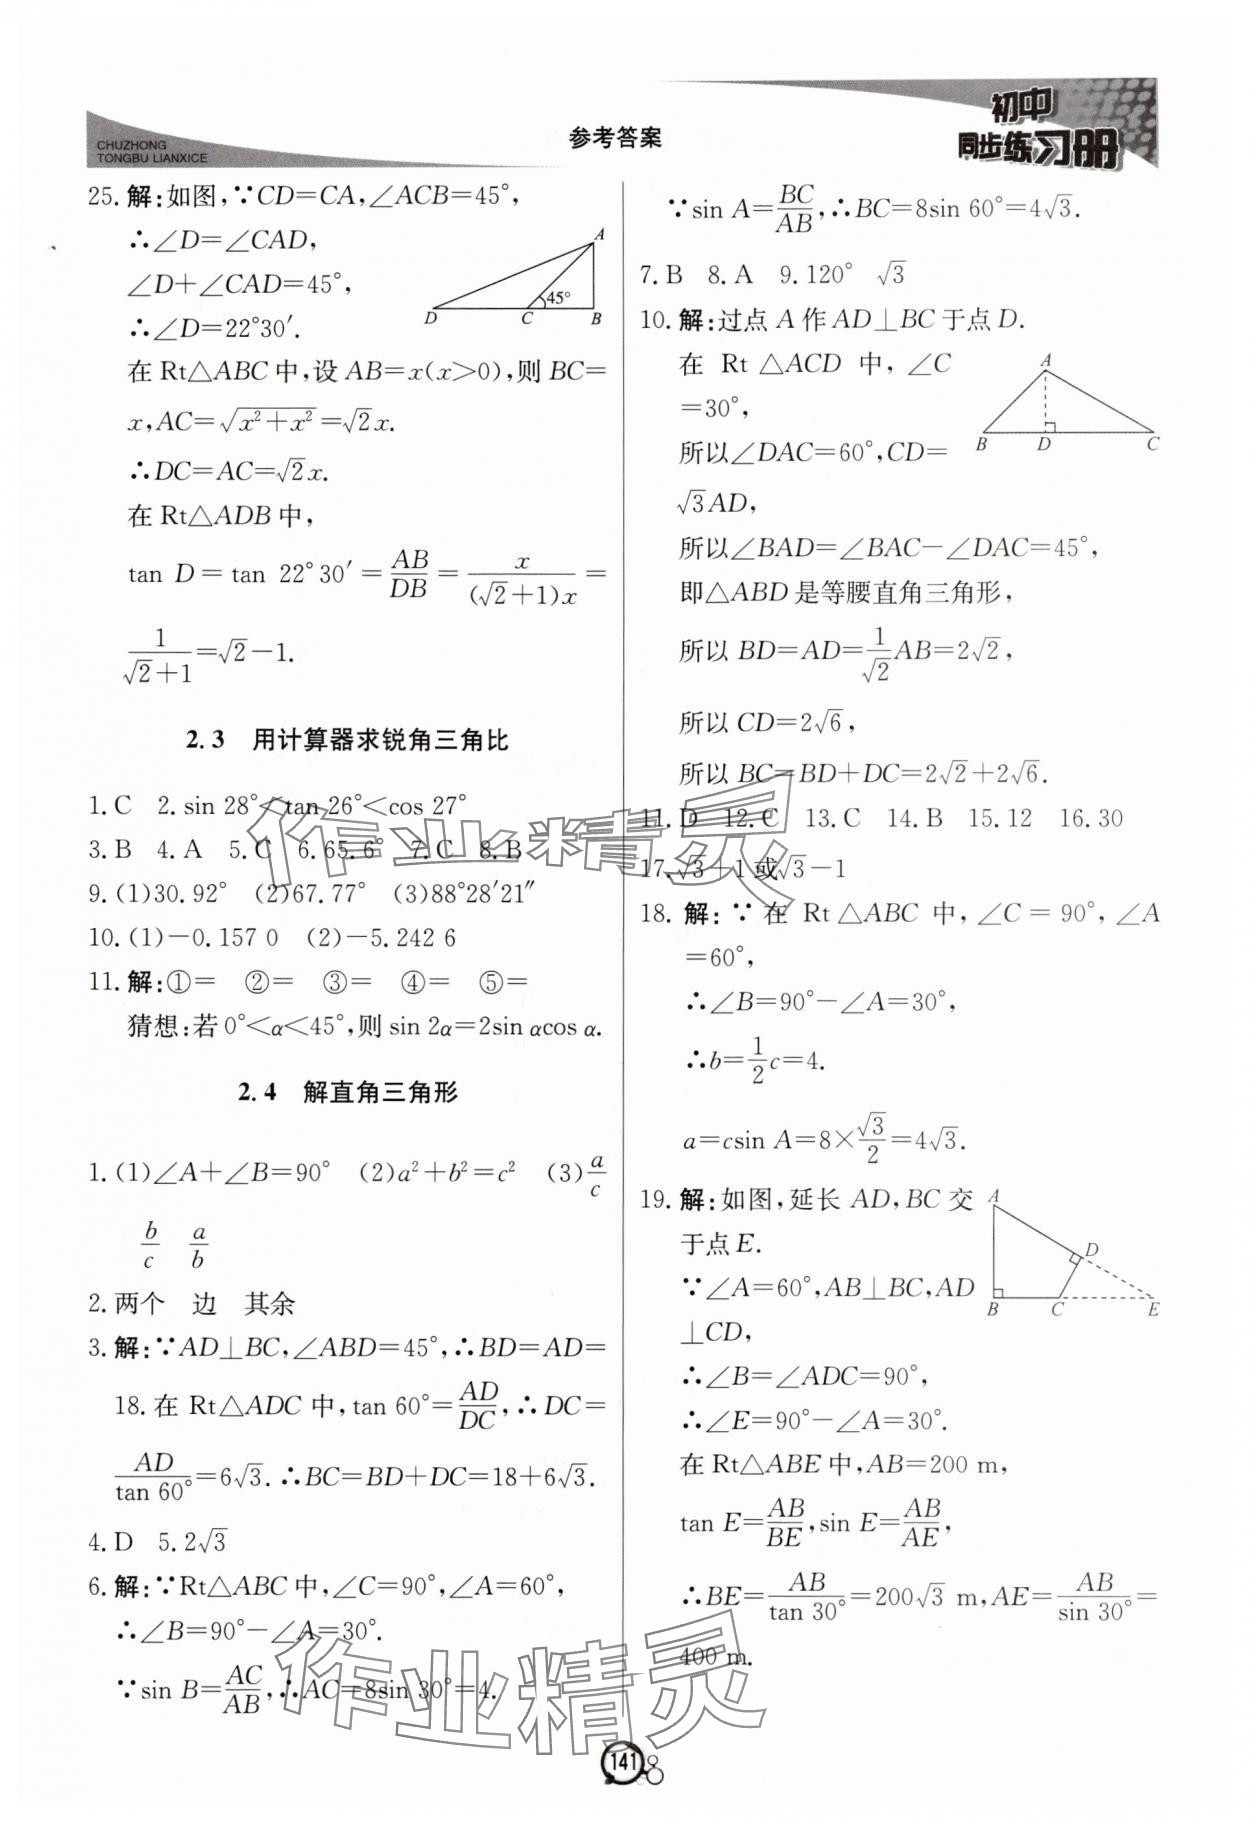 CHUZHONG
TONGBU LIANXICE
参考答案
初中
同步练习册
25. 解:如图,∵CD=CA,∠ACB=45°,
∴∠D=∠CAD,
∠D+∠CAD=45°,
∴∠D=22°30′.
A
45°
D C B
在Rt△ABC中,设AB=x(x>0),则BC=
x,AC=√(x²+x²)=√2x.
∴DC=AC=√2x.
在Rt△ADB中,
tan D=tan 22°30′=AB/DB=x/((√2+1)x)=
1/(√2+1)=√2-1.
2.3 用计算器求锐角三角比
1. C 2. sin 28°<tan 26°<cos 27°
3. B 4. A 5. C 6. 65.6° 7. C 8. B
9. (1)30.92° (2)67.77° (3)88°28′21″
10. (1)-0.157 0 (2)-5.242 6
11. 解:①= ②= ③= ④= ⑤=
猜想:若0°<α<45°,则sin 2α=2sin αcos α.
2.4 解直角三角形
1. (1)∠A+∠B=90° (2)a²+b²=c² (3)a/c
b/c a/b
2. 两个 边 其余
3. 解:∵AD⊥BC,∠ABD=45°,∴BD=AD=
18. 在Rt△ADC中,tan 60°=AD/DC,∴DC=
AD/tan 60°=6√3. ∴BC=BD+DC=18+6√3.
4. D 5. 2√3
6. 解:∵Rt△ABC中,∠C=90°,∠A=60°,
∴∠B=90°-∠A=30°.
∵sin B=AC/AB,∴AC=8sin 30°=4.
∵sin A=BC/AB,∴BC=8sin 60°=4√3.
7. B 8. A 9. 120° √3
10. 解:过点A作AD⊥BC于点D.
在Rt△ACD中,∠C
=30°,
所以∠DAC=60°,CD=
√3AD,
A
B D C
所以∠BAD=∠BAC-∠DAC=45°,
即△ABD是等腰直角三角形,
所以BD=AD=1/√2AB=2√2,
所以CD=2√6,
所以BC=BD+DC=2√2+2√6.
11. D 12. C 13. C 14. B 15. 12 16. 30
17. √3+1或√3-1
18. 解:∵在Rt△ABC中,∠C=90°,∠A
=60°,
∴∠B=90°-∠A=30°,
∴b=1/2c=4.
a=csin A=8×√3/2=4√3.
19. 解:如图,延长AD,BC交
于点E.
∵∠A=60°,AB⊥BC,AD
⊥CD,
A
D
B C E
∴∠B=∠ADC=90°,
∴∠E=90°-∠A=30°.
在Rt△ABE中,AB=200 m,
tan E=AB/BE,sin E=AB/AE,
∴BE=AB/tan 30°=200√3 m,AE=AB/sin 30°=
400 m.
作业精灵
作业精灵
141